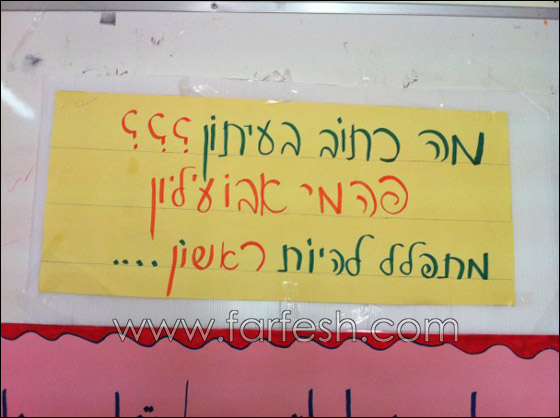 מה כתוב בעיתון ؟؟؟
פהמי אבועליון
מתפלל להיות ראשון....
www.farfesh.com